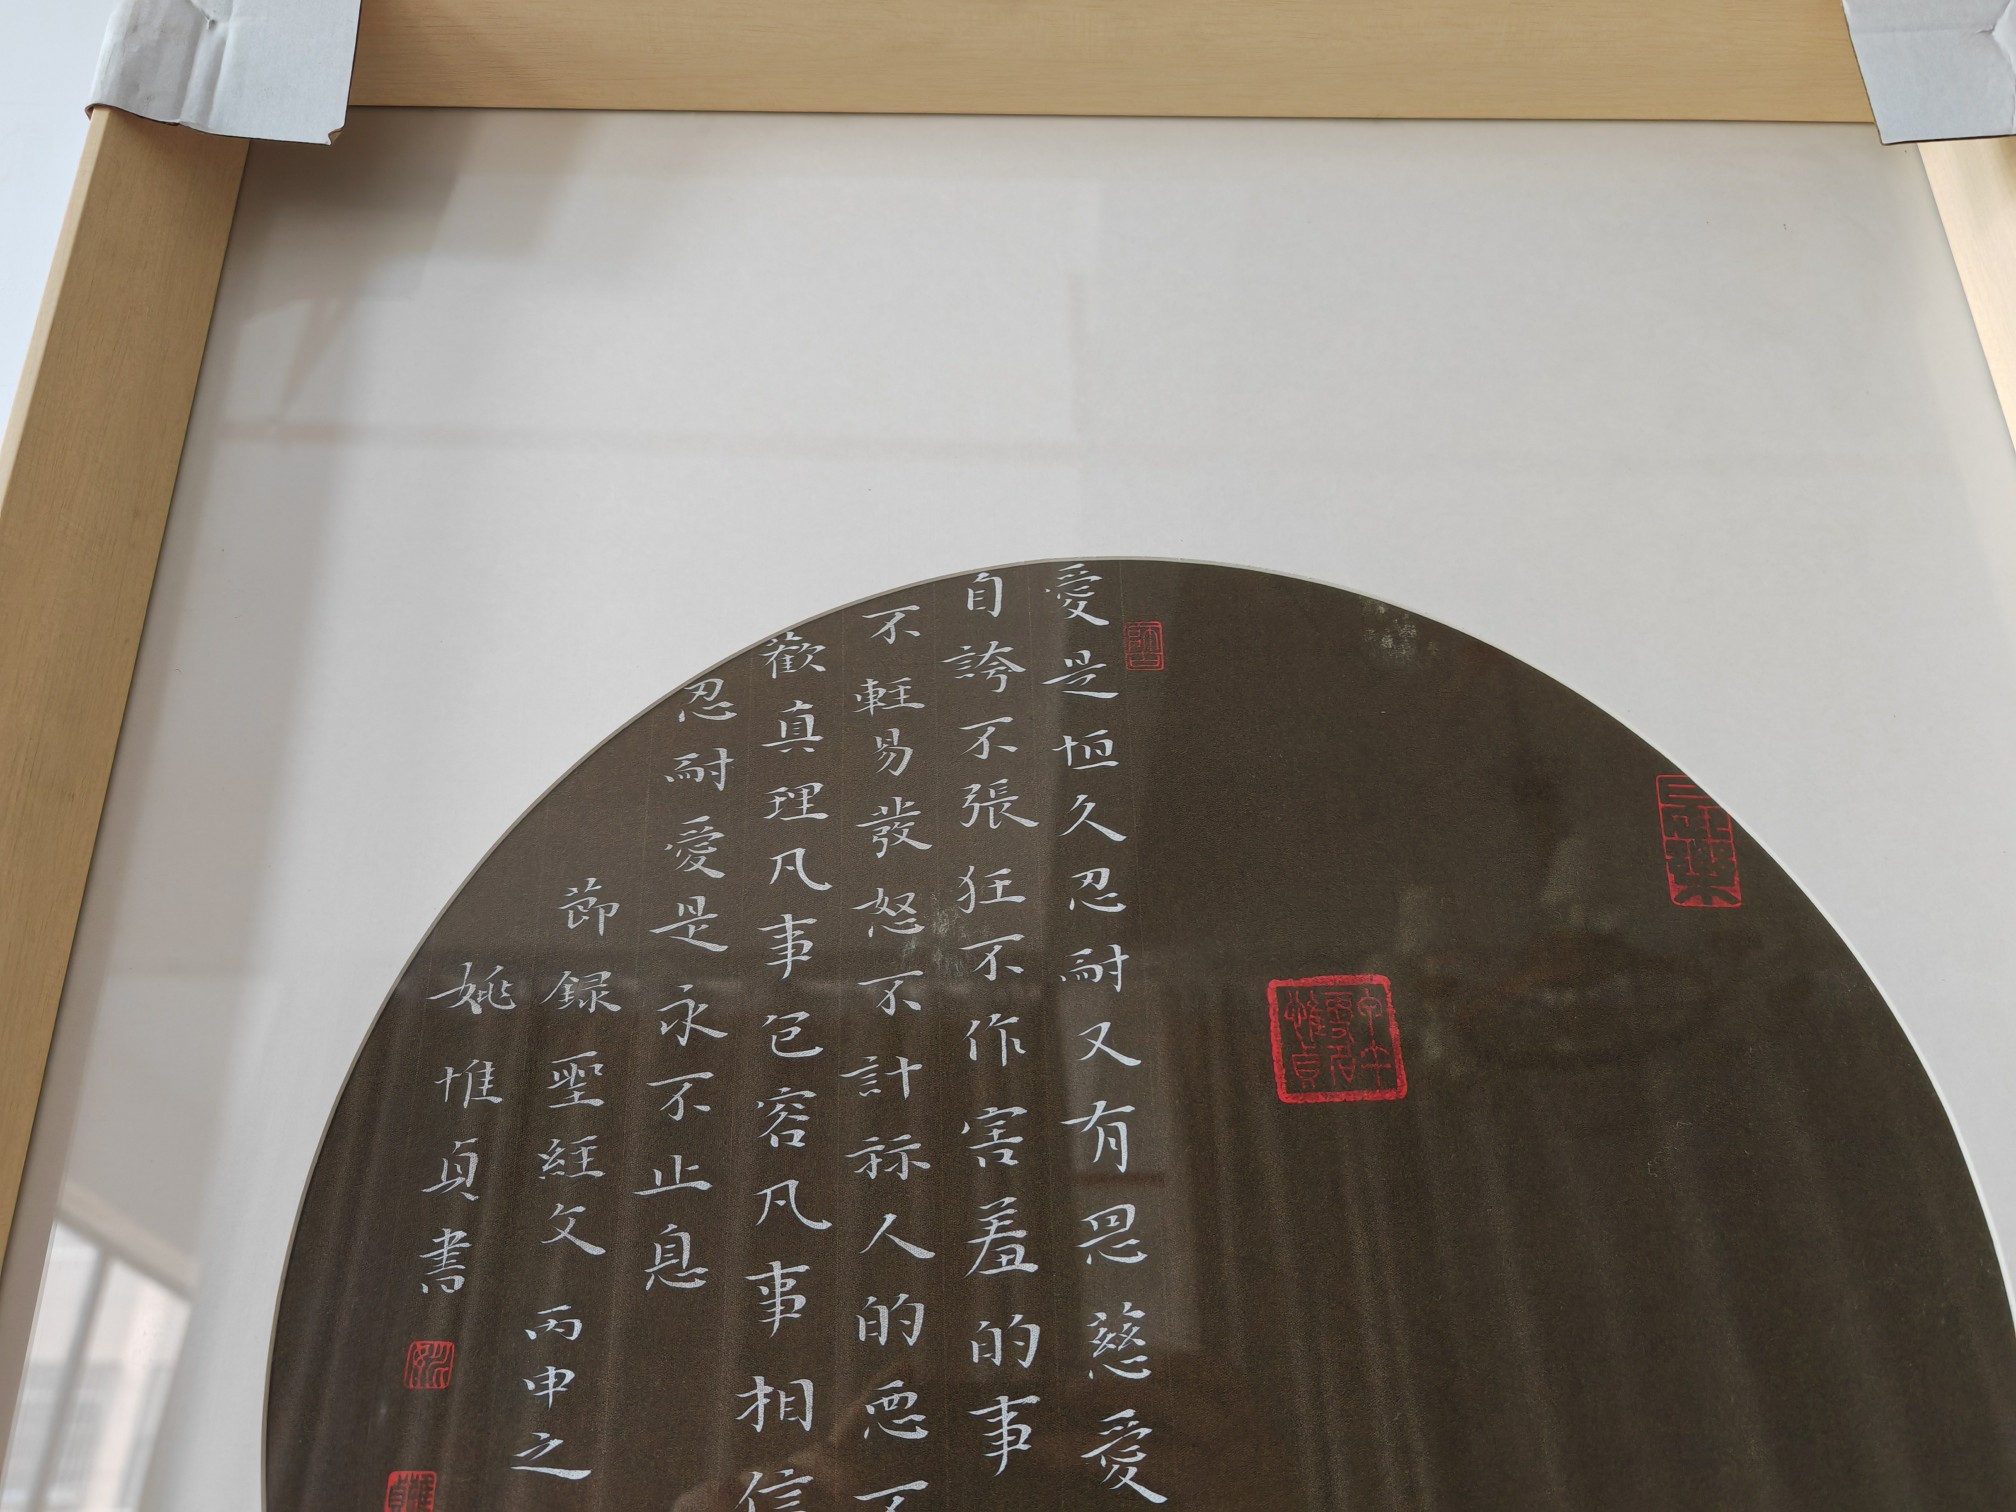 愛是恒久忍耐又有恩慈愛
自誇不張狂不作害羞的事
不輕易發怒不計祘人的惡不
歡真理凡事包容凡事相信
忍耐愛是永不止息
節録聖經文丙申之
姚惟貞書